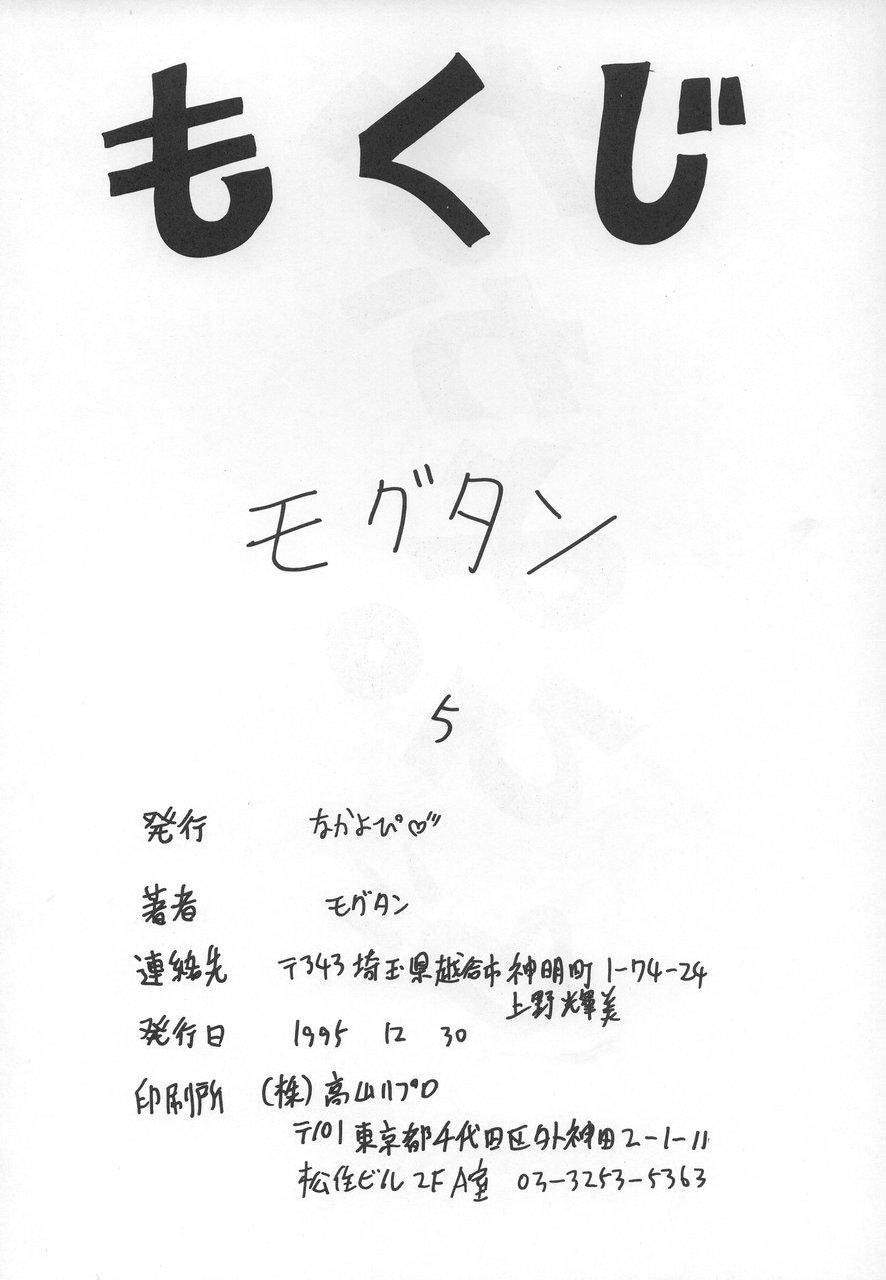 もくじ
モグタン
5
発行 なかよぴ♡"
著者 モグタン
連絡先 〒343 埼玉県越谷市神明町1-74-24
上野輝美
発行日 1995 12 30
印刷所 (株)高山リプロ
〒101 東京都千代田区外神田2-1-11
松住ビル2F A室 03-3253-5363